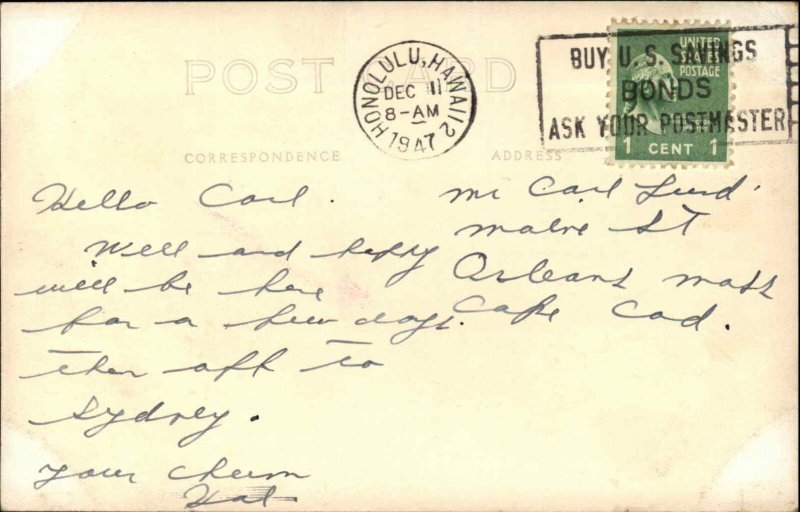 POST CARD
CORRESPONDENCE
ADDRESS
HONOLULU, HAWAII 2
DEC 11
8-AM
1947
BUY U.S. SAVINGS
BONDS
ASK YOUR POSTMASTER
UNITED
STATES
POSTAGE
1 CENT 1
Hello Carl.
Well and happy
will be here
for a few days.
then off to
Sydney.
your chum
Mr Carl
St
Orleans Mass
Cape Cod.